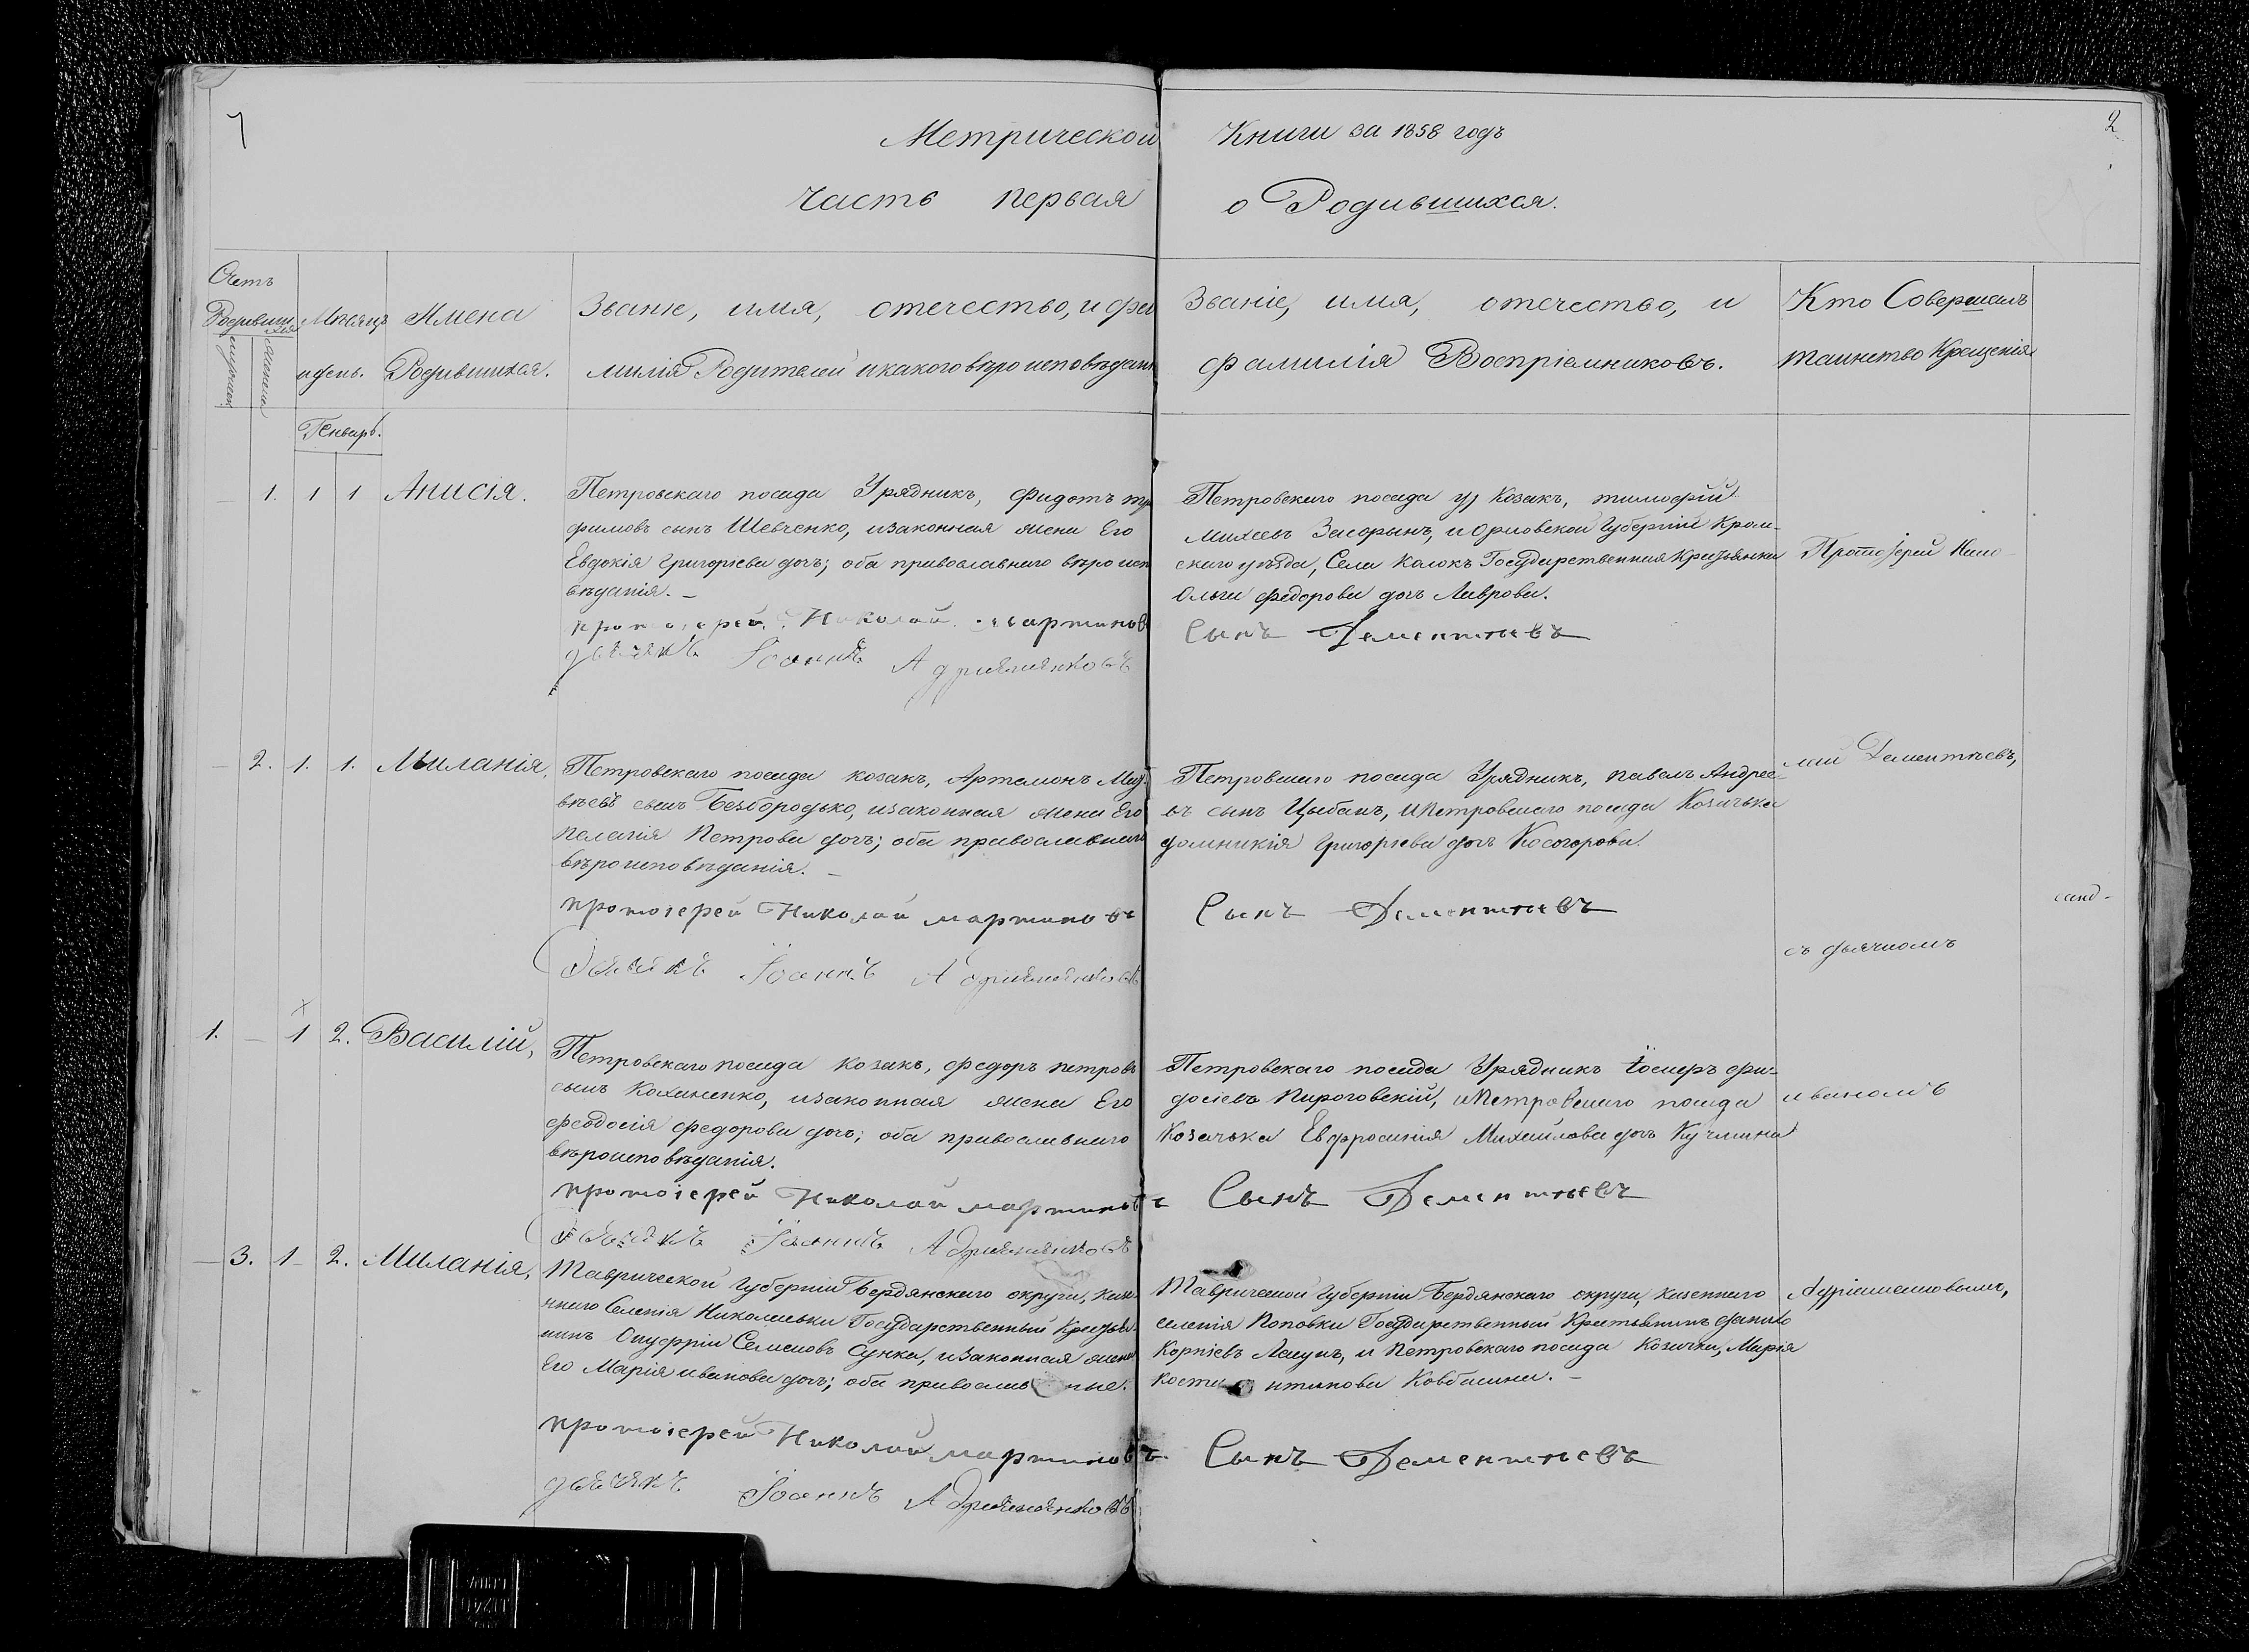 7
2
Метрической Книги за 1858 годъ
часть первая о Родившихся.
Счетъ
Родивших
ся
мужеска
женска
Мѣсяцъ
и день.
Имена
Родившихся.
Званіе, имя, отечество, и фа
милія Родителей и какого вѣроисповѣданія
Званіе, имя, отечество, и
фамилія Воспріемниковъ.
Кто Совершалъ
таинство Крещенія
Генварь.
— 1. 1 1 Анисія.
Петровскаго посада Урядникъ, Федотъ тро
фимовъ сынъ Шевченко, изаконная жена Его
Евдокія Григоріева дочь; оба православнаго вѣроисп
вѣданія. —
протоіерей Николай мартинов
дьячекъ Іоаннъ
Петровскаго посада Козакъ, тимофій
михеевъ и Орловской Губерніи Кром-
скаго уѣзда, Села Калокъ Государственная Крестьянка
Ольга федорова дочь Лаврова.
Сынъ Дементѣевъ
Протоіерей Нико-
— 2. 1. 1. Миланія,
Петровскаго посада козакъ, Артамонъ Мат-
вѣевъ сынъ Безбородько, изаконная жена Его
Пелагія Петрова дочь; оба православнаго
вѣроисповѣданія. —
протоіерей Николай мартиновъ
дьячекъ Іоаннъ
Петровскаго посада Урядникъ, павелъ Андрее-
въ сынъ Цыбань, иПетровскаго посада Козачька
домникія Григоріева дочь Косогорова.
Сынъ Дементѣевъ
лай Дементѣевъ,
съ дьячкомъ
1. — 1 2. Василій,
Петровскаго посада козакъ, федоръ петровъ
сынъ Коханенко, изаконная жена Его
феодосія федорова дочь; оба православнаго
вѣроисповѣданія.
протоіерей Николай мартиновъ
дьячекъ Іоаннъ
Петровскаго посада Урядникъ Іосифъ фи-
досіевъ Пироговскій, иПетровскаго посада
Козачька Евфросинія Михаилова дочь Кучмина
Сынъ Дементѣевъ
иваномъ
— 3. 1 2. Миланія,
Таврической Губерніи Бердянскаго округа, казе-
ннаго Селенія Николаевки Государственный Крестья-
нинъ Онуфрій Семеновъ Сунка, изаконная жена
Его Марія иванова дочь; оба православные.
протоіерей Николай мартиновъ
дьячекъ Іоаннъ
Таврической Губерніи Бердянскаго округа, казеннаго
селенія Поповки Государственный Крестьянинъ
Корніевъ и Петровскаго посада Козачка, Марія
Константинова Ковбасина. —
Сынъ Дементѣевъ